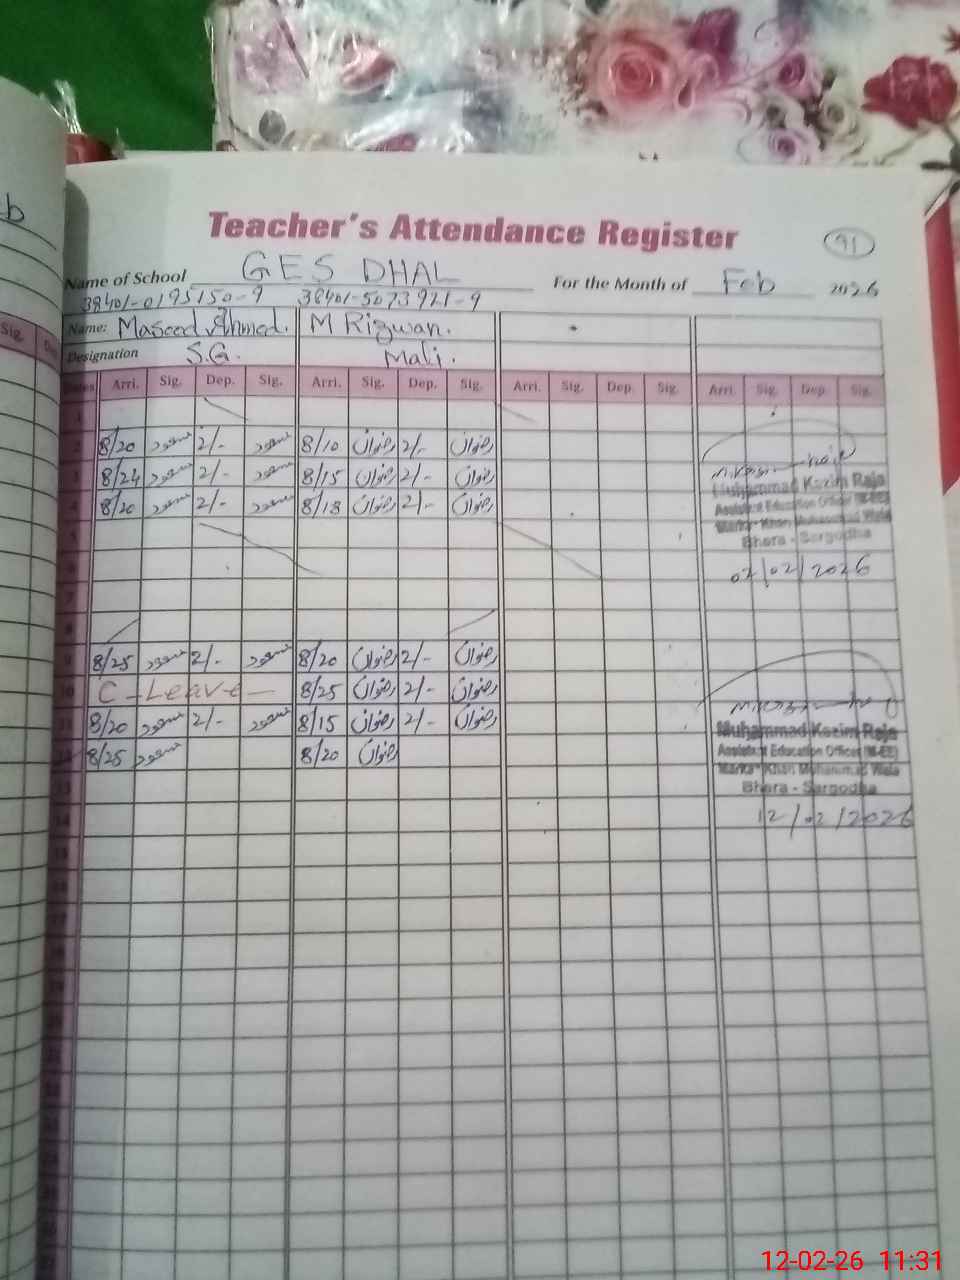 b
Teacher's Attendance Register
91
Name of School GES DHAL For the Month of Feb 2026
38401-0195150-9 38401-5073921-9
Name: Masood Ahmed. M Rizwan.
Designation S.G. Mali.
Dates Arri. Sig. Dep. Sig. Arri. Sig. Dep. Sig. Arri. Sig. Dep. Sig. Arri. Sig. Dep. Sig.
1
2 8/20 مسعود 2/- مسعود 8/10 رضوان 2/- رضوان
3 8/24 مسعود 2/- مسعود 8/15 رضوان 2/- رضوان
4 8/20 مسعود 2/- مسعود 8/18 رضوان 2/- رضوان
Muhammad Kazim Raja
Assistant Education Officer (M-EE)
Markaz Khan Muhammad Wala
Bhera - Sargodha
5
6
02/02/2026
7
8
9 8/25 مسعود 2/- مسعود 8/20 رضوان 2/- رضوان
10 C-Leave- 8/25 رضوان 2/- رضوان
11 8/20 مسعود 2/- مسعود 8/15 رضوان 2/- رضوان
12 8/25 مسعود 8/20 رضوان
Muhammad Kazim Raja
Assistant Education Officer (M-EE)
Markaz Khan Muhammad Wala
Bhera - Sargodha
13
14
12/02/2026
12-02-26 11:31